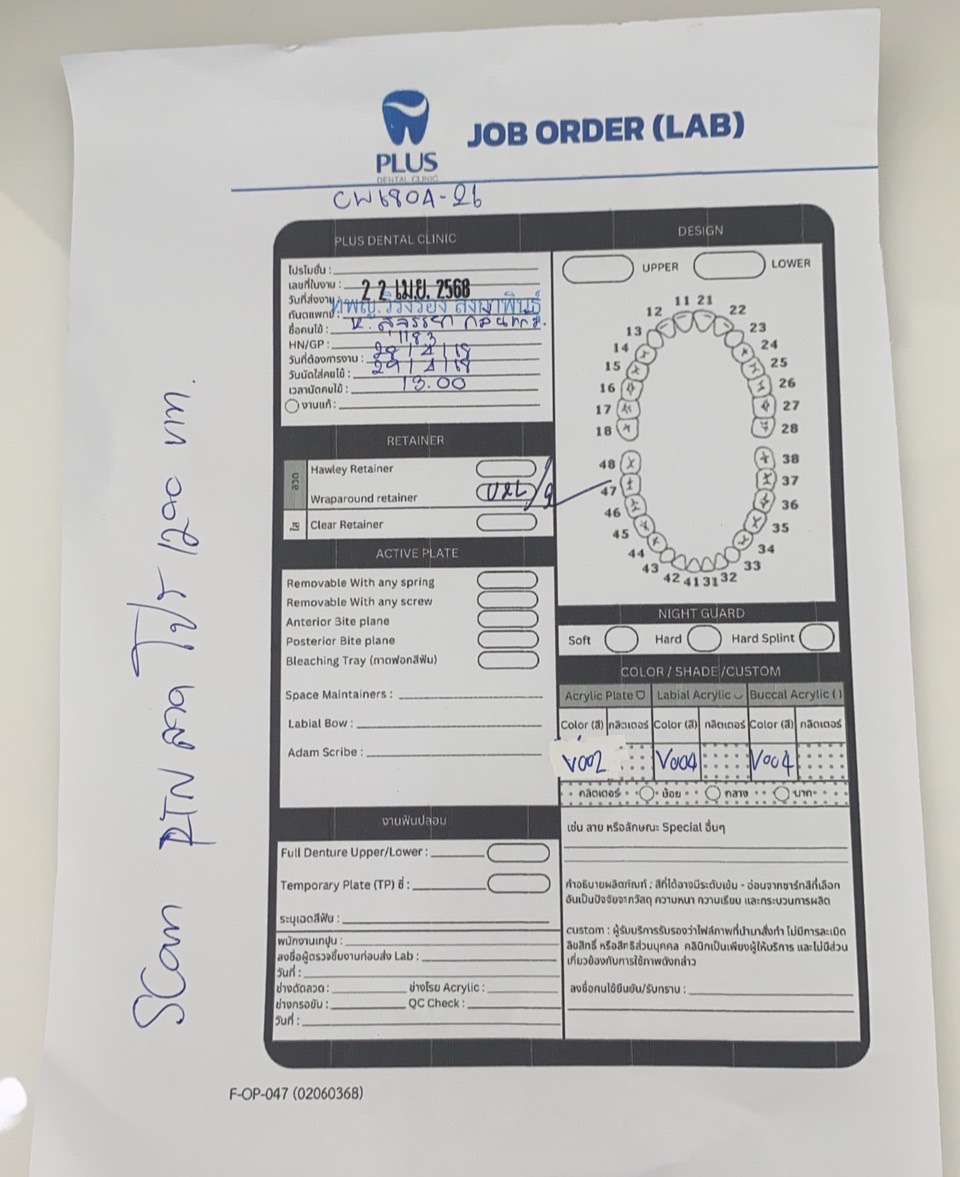 PLUS
DENTAL CLINIC
JOB ORDER (LAB)
CW6804-26
PLUS DENTAL CLINIC
โปรโมชั่น :
เลขที่ใบงาน :
วันที่ส่งงาน : 2 2 เม.ย. 2568
ทันตแพทย์ :
ชื่อคนไข้ :
HN/GP : 1183
วันที่ต้องการงาน :
วันนัดใส่คนไข้ :
เวลานัดคนไข้ : 13.00
งานแก้ :
RETAINER
ลวด
Hawley Retainer
Wraparound retainer
ใส
Clear Retainer
ACTIVE PLATE
Removable With any spring
Removable With any screw
Anterior Bite plane
Posterior Bite plane
Bleaching Tray (ถาดฟอกสีฟัน)
Space Maintainers :
Labial Bow :
Adam Scribe :
งานฟันปลอม
Full Denture Upper/Lower :
Temporary Plate (TP) ซี่ :
ระบุเฉดสีฟัน :
พนักงานเทปูน :
ลงชื่อผู้ตรวจชิ้นงานก่อนส่ง Lab :
วันที่ :
ช่างดัดลวด : ช่างโรย Acrylic :
ช่างกรอขัด : QC Check :
วันที่ :
DESIGN
UPPER LOWER
11 21
12 22
13 23
14 24
15 25
16 26
17 27
18 28
48 38
47 37
46 36
45 35
44 34
43 33
42 41 31 32
NIGHT GUARD
Soft Hard Hard Splint
COLOR / SHADE /CUSTOM
Acrylic Plate Labial Acrylic Buccal Acrylic ( )
Color (สี) กลิตเตอร์ Color (สี) กลิตเตอร์ Color (สี) กลิตเตอร์
V002 V004 V004
กลิตเตอร์ น้อย กลาง มาก
เช่น ลาย หรือลักษณะ Special อื่นๆ
คำอธิบายผลิตภัณฑ์ : สีที่ได้อาจมีระดับเข้ม - อ่อนจากชาร์ทสีที่เลือก
อันเป็นปัจจัยจากวัสดุ ความหนา ความเรียบ และกระบวนการผลิต
custom : ผู้รับบริการรับรองว่าไฟล์ภาพที่นำมาสั่งทำ ไม่มีการละเมิด
ลิขสิทธิ์ หรือสิทธิส่วนบุคคล คลินิกเป็นเพียงผู้ให้บริการ และไม่มีส่วน
เกี่ยวข้องกับการใช้ภาพดังกล่าว
ลงชื่อคนไข้ยืนยัน/รับทราบ :
F-OP-047 (02060368)
Scan RTN ลวด